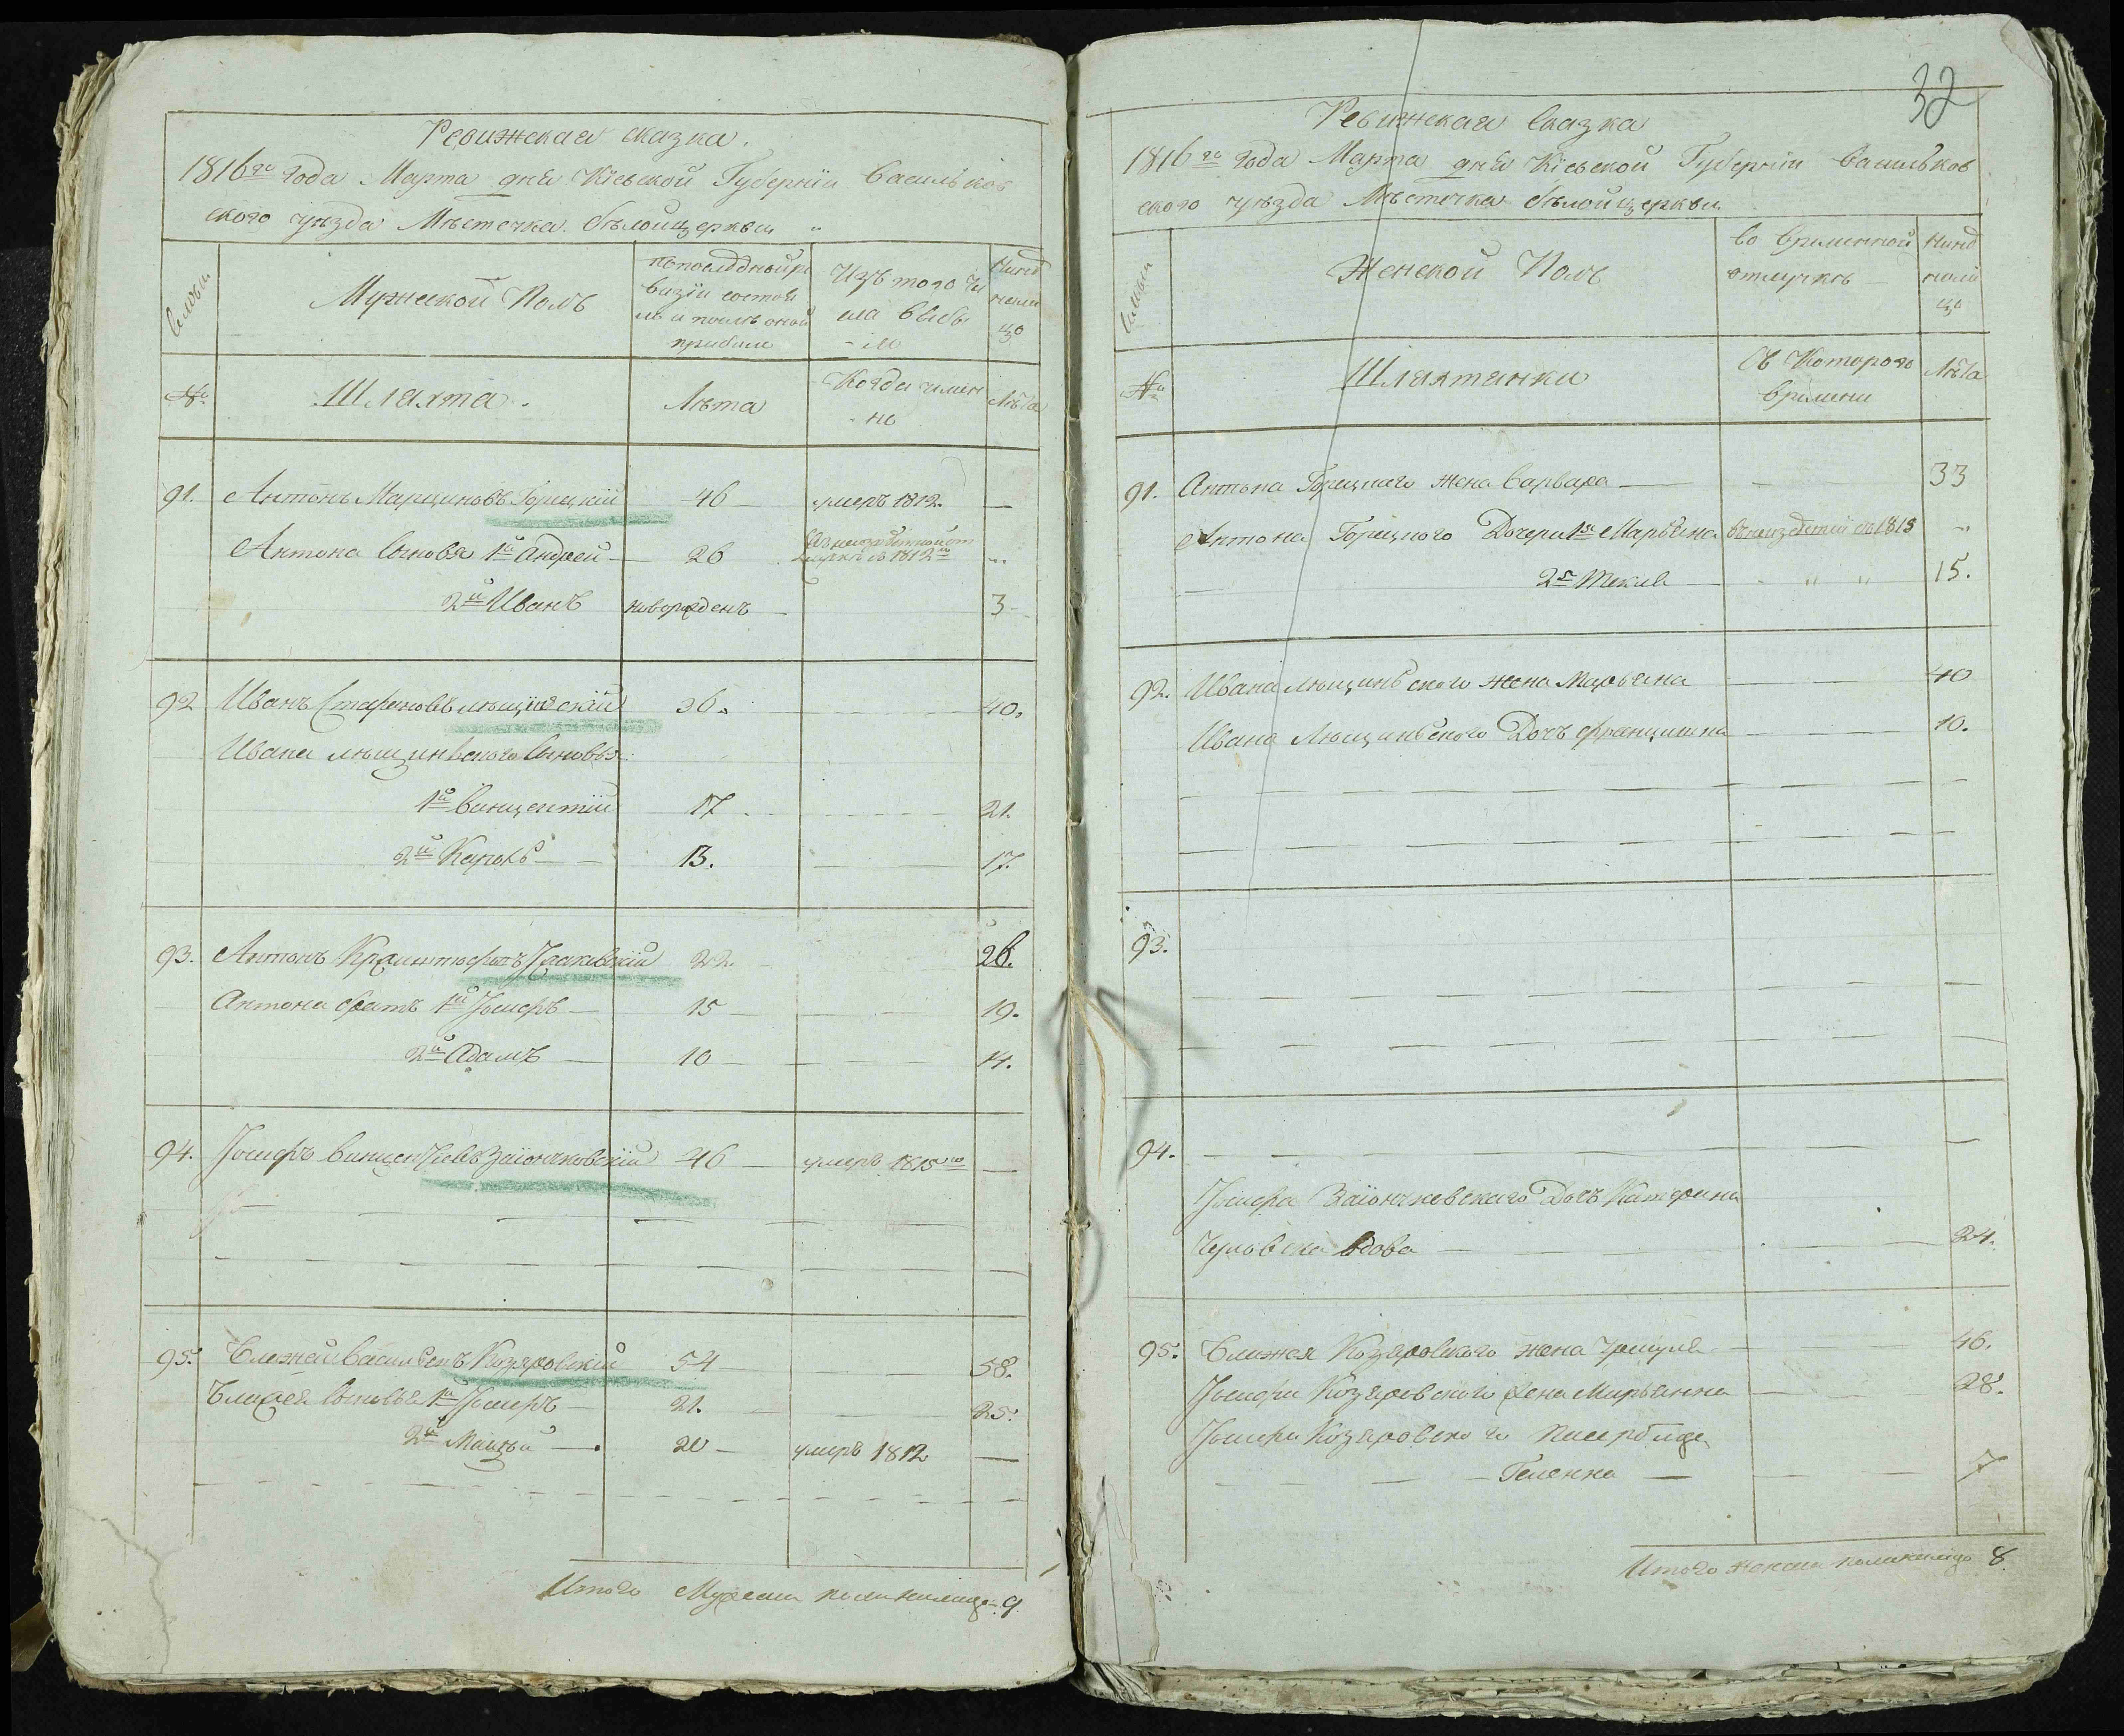 Ревижская сказка.
1816го года Марта дня Кіевской Губерніи Васильков
ского уѣзда Мѣстечка бѣлойцеркви
Семьи
Мужеской Полъ
попослѣдной ре
визіи состоя
ло и послѣ оной
прибыло
Изъ того Чи
сла выбы
ло
Нинѣ
нали
цо
№
Шляхта.
Лѣта
Когда имен
но
Лѣта
91. Антонъ Марциновъ Горецкій 46 умеръ 1812. —
Антона Сыновья 1й Андрей 26 съ 1812го
2й Иванъ новорожденъ 3
92 Иванъ Стефановъ Лющинскій 36. 40.
Ивана Лющинского Сыновья:
1й Винцентій 17 21.
2й Кароль 13. 17.
93. Антонъ 22 26.
Антона братъ 1й Іосифъ 15 19.
2й Адамъ 10 14.
94. Іосифъ Винцентіевъ Заіончковскій 46 умеръ 1815го —
95. Блажей Васильевъ Козяровскій 54 58.
Блажея Сыновья 1й Іосифъ 21. 25.
2й Мацѣй 20 умеръ 1812 —
Итого Мужеска пола налицо 9.
32
Ревижская Сказка
1816го года Марта дня Кіевской Губерніи Васильков
ского уѣзда Мѣстечка бѣлойцеркви
Семьи
Женской Полъ
Во временной
отлучкѣ
Нинѣ
нали
цо
№
Шляхтянки
Съ Которого
времени
Лѣта
91. Антона Горецкаго жена Варвара — 33
Антона Горецкого Дочери 1я Марьяна съ 1813
2я Текля 15.
92. Ивана Лющинского жена Марьяна 40
Ивана Лющинского Дочъ Францишка 10.
93.
94.
Іосифа Заіончковского Дочъ Катерина
вдова 24.
95. Блажея Козяровского жена Уршуля 46.
Іосифа Козяровского жена Марьянна 28.
Іосифа Козяровского
Геленна 7
Итого женска пола налицо 8.